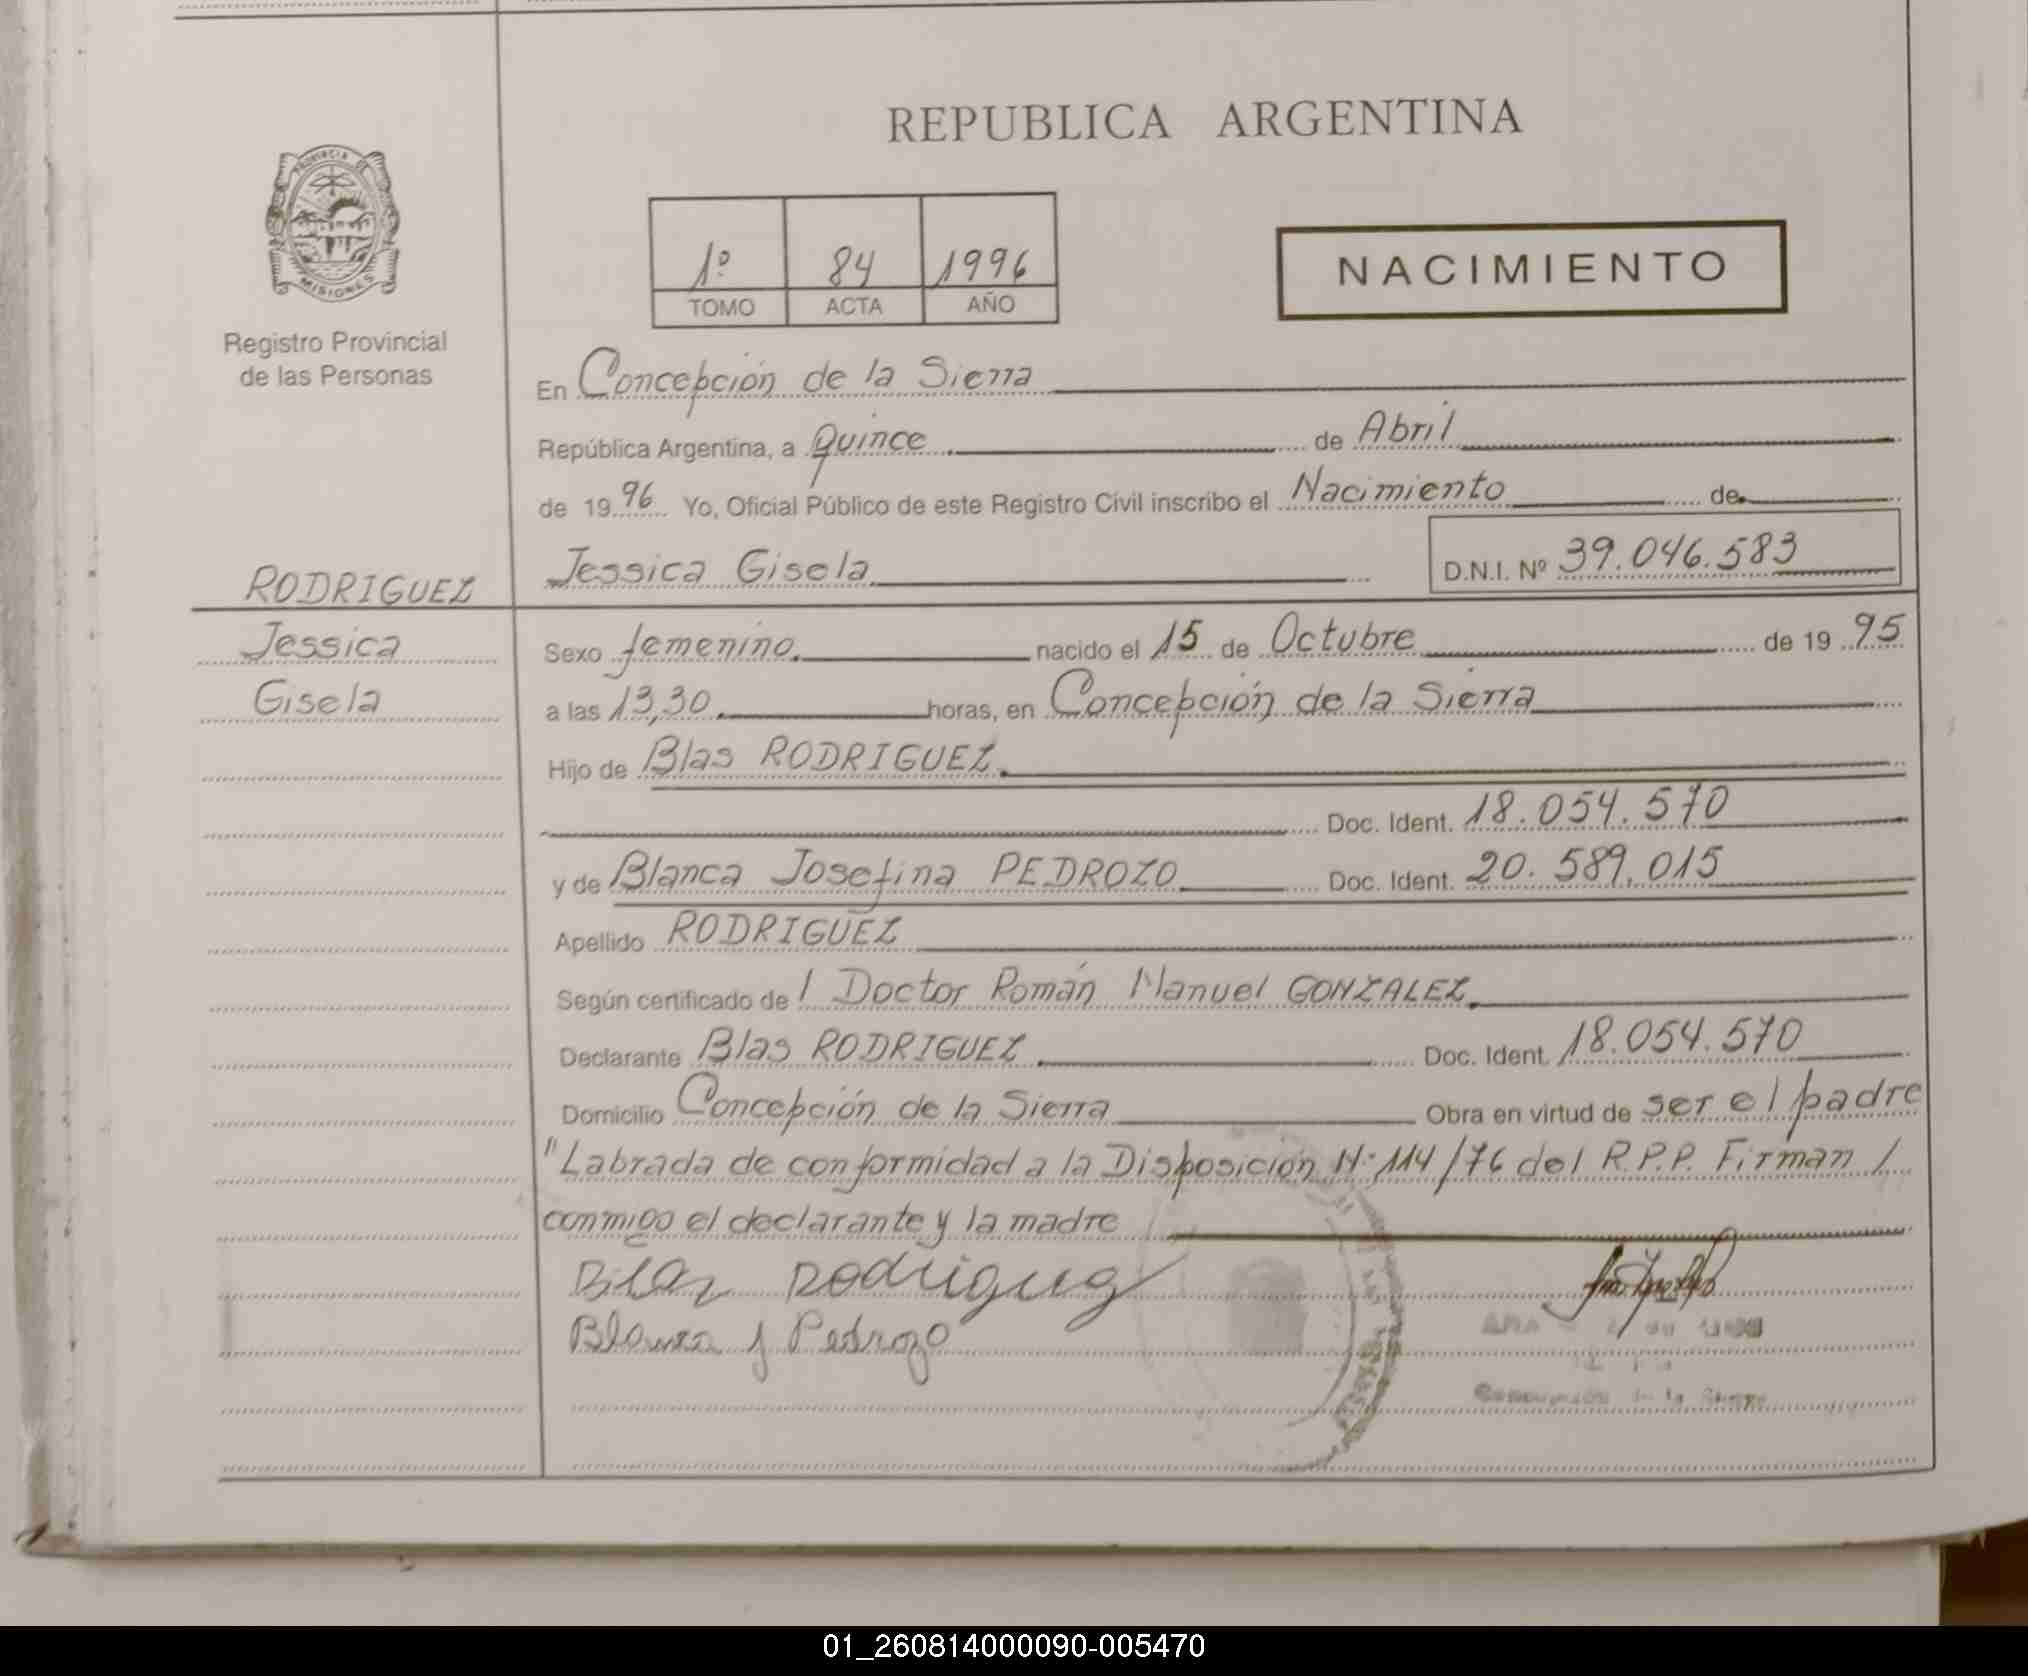 REPUBLICA ARGENTINA
PROVINCIA DE
MISIONES
Registro Provincial
de las Personas
1º 84 1996
TOMO ACTA AÑO
NACIMIENTO
En Concepción de la Sierra
República Argentina, a Quince de Abril
de 1996 Yo, Oficial Público de este Registro Civil inscribo el Nacimiento de
Jessica Gisela D.N.I. Nº 39.046.583
RODRIGUEZ
Jessica
Gisela
Sexo femenino nacido el 15 de Octubre de 1995
a las 13,30 horas, en Concepción de la Sierra
Hijo de Blas RODRIGUEZ
Doc. Ident. 18.054.570
y de Blanca Josefina PEDROZO Doc. Ident. 20.589.015
Apellido RODRIGUEZ
Según certificado de l Doctor Román Manuel GONZALEZ
Declarante Blas RODRIGUEZ Doc. Ident. 18.054.570
Domicilio Concepción de la Sierra Obra en virtud de ser el padre
"Labrada de conformidad a la Disposición Nº 114/76 del R.P.P. Firman /
conmigo el declarante y la madre
Blas Rodriguez
Blanca J Pedrozo
de la Sierra
01_260814000090-005470